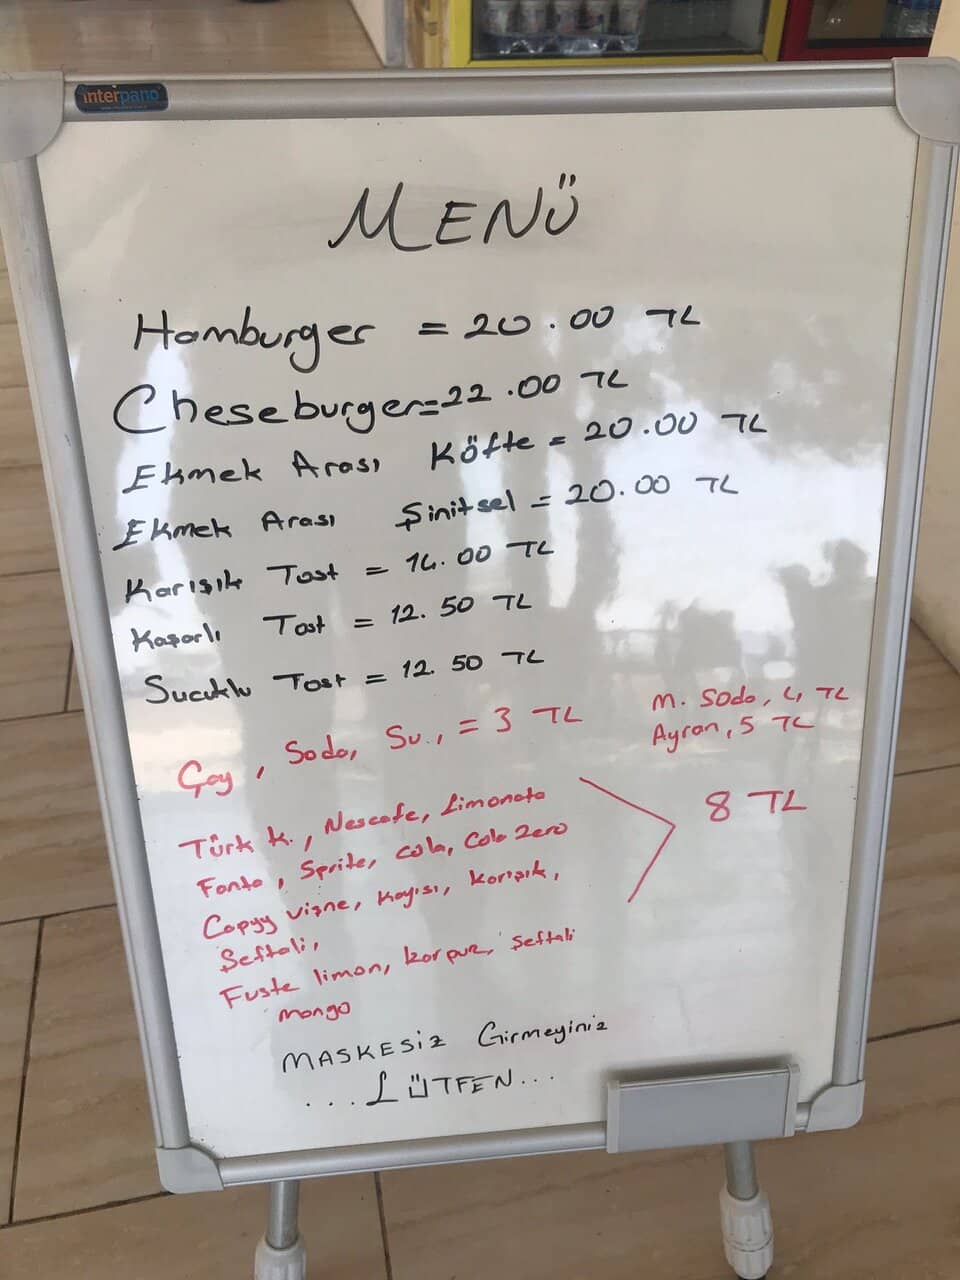 interpano
MENÜ
Hamburger = 20.00 TL
Cheseburger=22.00 TL
Ekmek Arası Köfte = 20.00 TL
Ekmek Arası Şinitsel = 20.00 TL
Karışık Tost = 14.00 TL
Kaşarlı Tost = 12.50 TL
Sucuklu Tost = 12.50 TL
Çay, Soda, Su., = 3 TL
M. Soda, 4 TL
Ayran, 5 TL
Türk k., Nescafe, Limonata
Fanta, Sprite, cola, Cola Zero
Copyy vişne, kayısı, karışık,
Şeftali,
8 TL
Fuste limon, karpuz, şeftali
mango
MASKESiZ Girmeyiniz
...LÜTFEN...